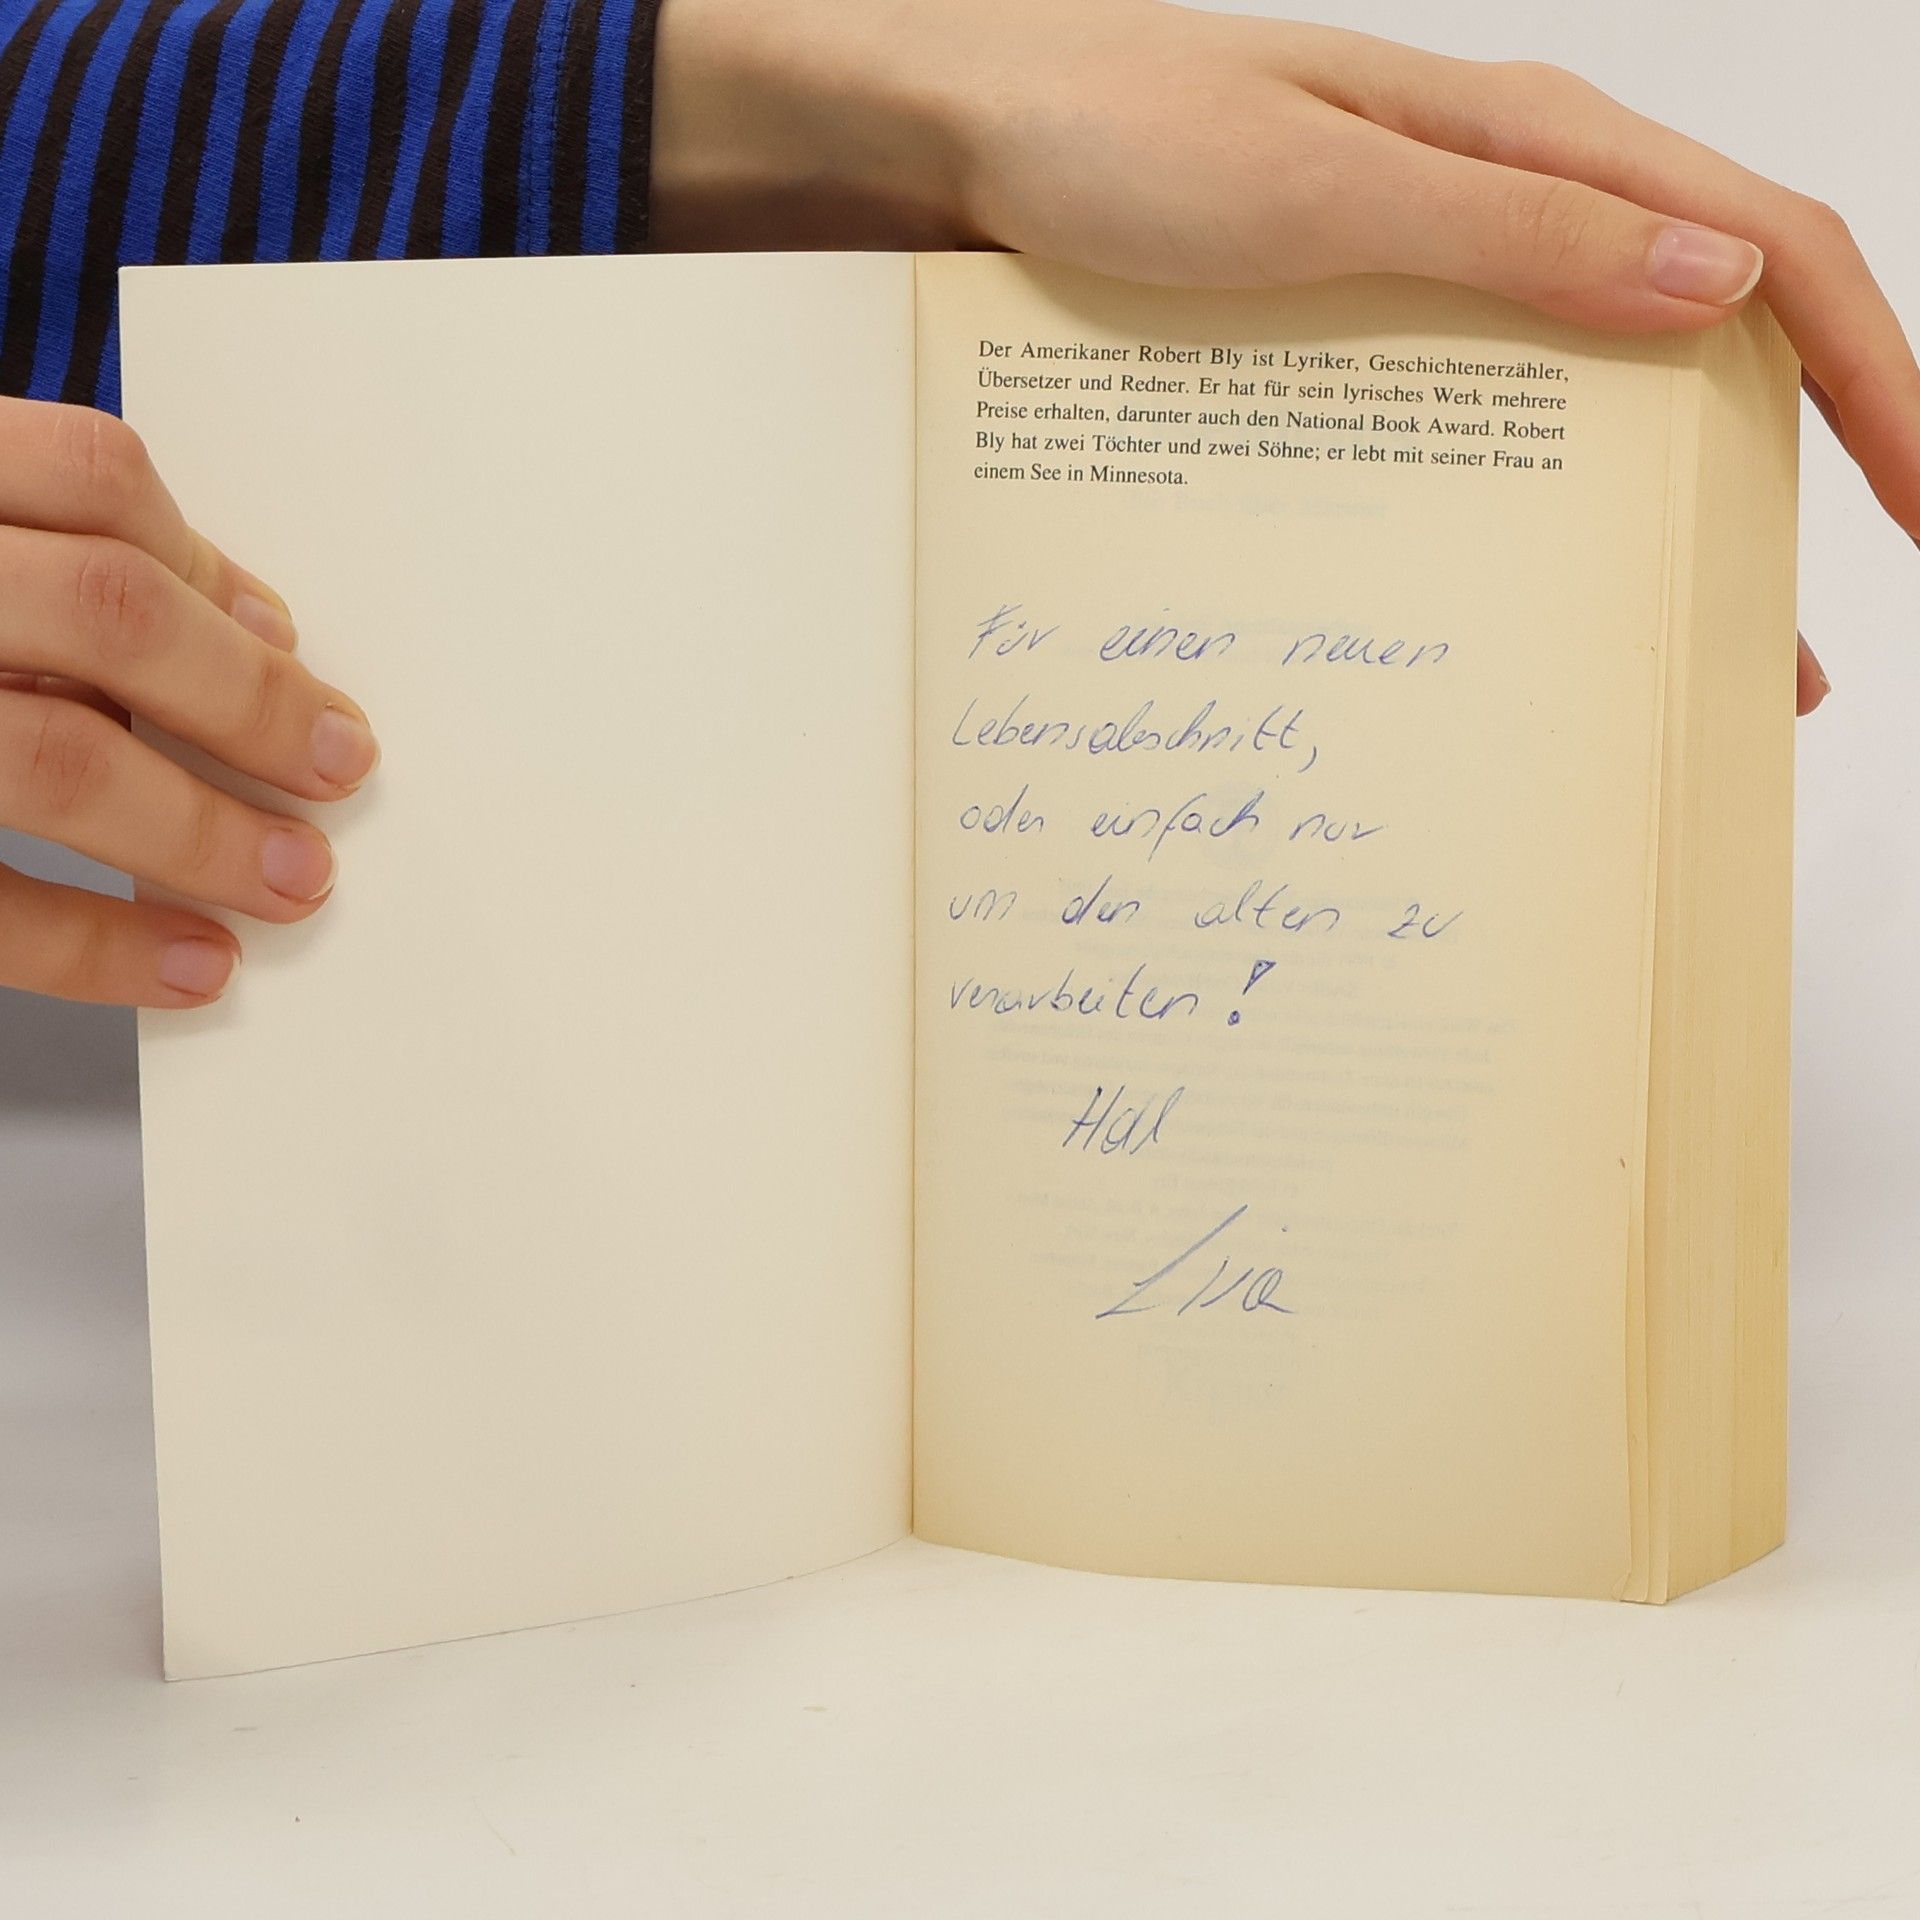 Der Amerikaner Robert Bly ist Lyriker, Geschichtenerzähler,
Übersetzer und Redner. Er hat für sein lyrisches Werk mehrere
Preise erhalten, darunter auch den National Book Award. Robert
Bly hat zwei Töchter und zwei Söhne; er lebt mit seiner Frau an
einem See in Minnesota.
Für einen neuen
Lebensabschnitt,
oder einfach nur
um den alten zu
verarbeiten!
Hdl